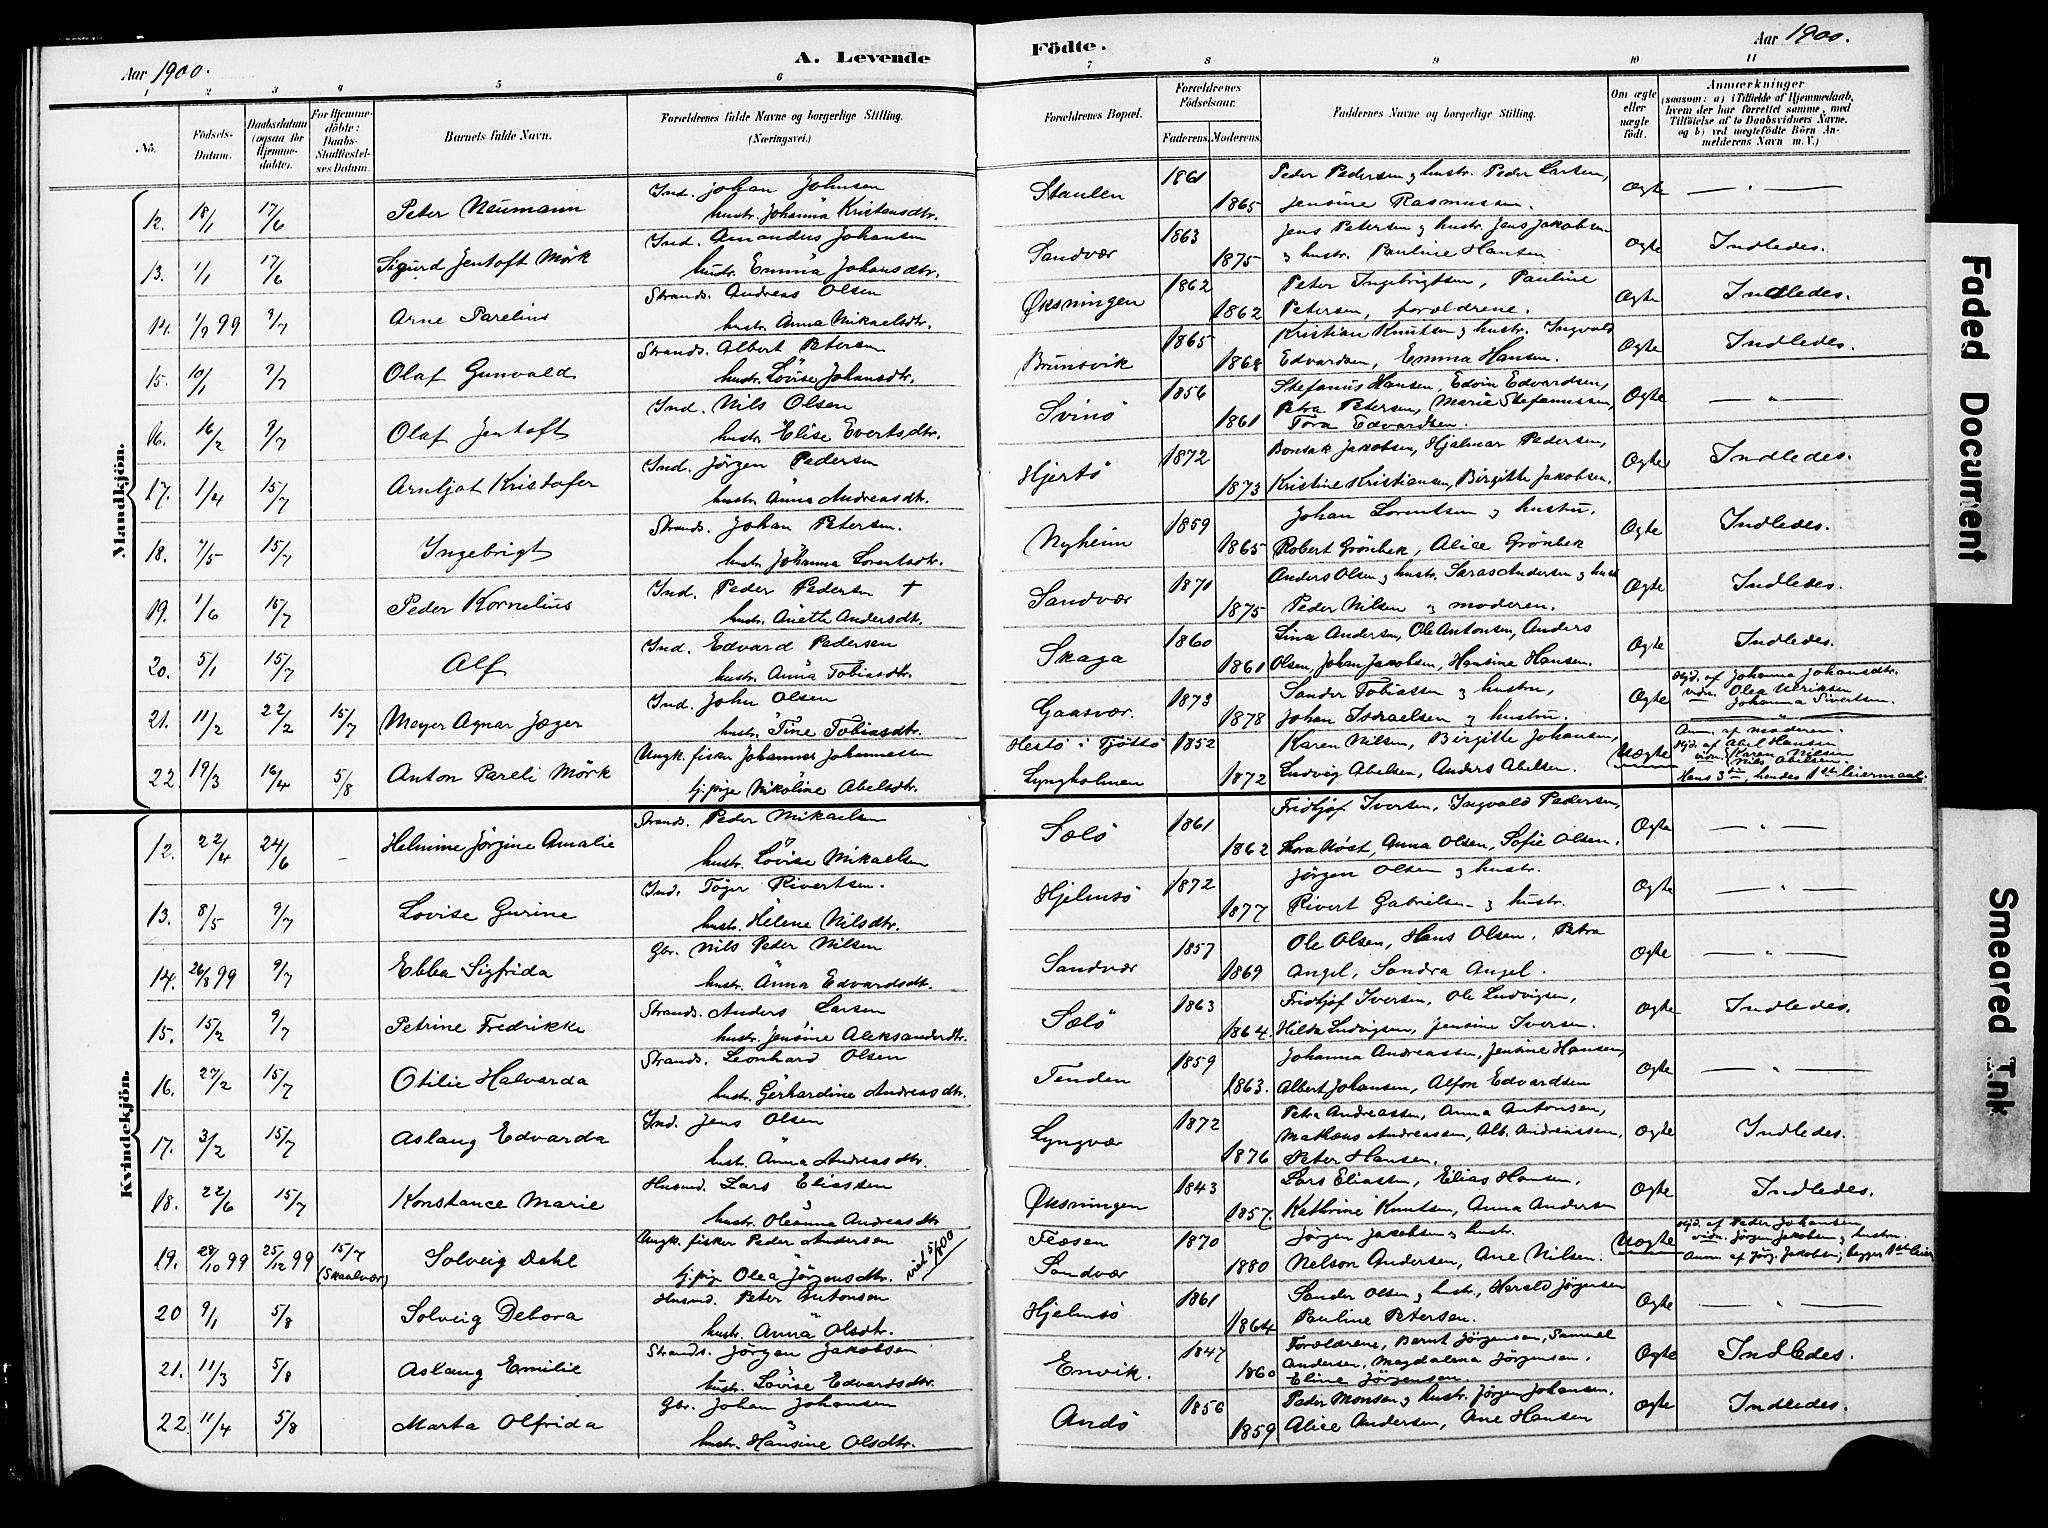 Aar 1900. A. Levende
Födte. Aar 1900.
1 2 3 4 5 6 7 8 9 10 11
No. Födsels-Datum. Daabsdatum (ogsaa for Hjemme-döbte). For Hjemme-döbte: Daabs-Stadfæstel-ses Datum. Barnets fulde Navn. Forældrenes fulde Navne og borgerlige Stilling. (Næringsvei.) Forældrenes Bopæl. Forældrenes Födselsaar. Faderens. Moderens. Faddernes Navne og borgerlige Stilling. Om ægte eller uægte födt. Anmærkninger (saasom: a) i Tilfælde af Hjemmedaab, hvem der har forrettet samme, med Tilföielse af to Daabsvidners Navne, og b) ved uægtefödte Börn An-melderens Navn m. V.)
Mandkjön.
12. 18/1 17/6 Peter Neumann Ind. Johan Johnsen hustr. Johanna Kristensdtr. Staulen 1861 1865 Peder Pedersen og hustr. Peder Larsen, Jensine Rasmussen. Ægte — " —
13. 1/1 17/6 Sigurd Jentoft Mörk Ind. Amandus Johansen hustr. Emma Johansdtr. Sandvær 1863 1875 Jens Petersen og hustr. Jens Jakobsen og hustr. Pauline Hansen Ægte Indledes.
14. 1/9 99 9/7 Arne Parelius Strands. Andreas Olsen hustr. Anna Mikaelsdtr. Øksningen 1862 1862 Peter Ingebrigtsen, Pauline Petersen, forældrene. Ægte Indledes.
15. 10/1 9/7 Olaf Gunvald Strands. Albert Petersen hustr. Lovise Johansdtr. Brunsvik 1865 1868 Kristian Knutsen og hustr. Ingvald Edvardsen, Emma Hansen. Ægte Indledes.
16. 16/2 9/7 Olaf Jentoft Ind. Nils Olsen hustr. Elise Evertsdtr. Svinö 1856 1861 Stefanus Hansen, Edvin Edvardsen, Petra Petersen, Marie Stefanussen, Tora Edvardsen. Ægte — " —
17. 1/4 15/7 Arnljot Kristofer Ind. Jörgen Pedersen hustr. Anna Andreasdtr. Hjertö 1872 1873 Bonsak Jakobsen, Hjalmar Pedersen, Kristine Kristiansen, Birgitte Jakobsen. Ægte Indledes.
18. 7/5 15/7 Ingebrigt Strands. Johan Petersen. hustr. Johanna Lorentsdtr. Nyheim 1859 1865 Johan Lorentsen og hustru. Robert Grönbek, Alice Grönbek Ægte Indledes.
19. 1/6 15/7 Peder Kornelius Ind. Peder Pedersen † hustr. Anette Andersdtr. Sandvær 1870 1875 Anders Olsen og hustr. Saras Andersen og hustr Peder Nilsen og moderen. Ægte Indledes.
20. 5/1 15/7 Alf Ind. Edvard Pedersen hustr. Anna Tobiasdtr. Skaga 1860 1861 Lina Andersen, Ole Antonsen, Anders Olsen, Johan Jakobsen, Hansine Hansen. Ægte Indledes.
21. 11/2 22/2 15/7 Meyer Agnar Jæger Ind. John Olsen hustr. Tine Tobiasdtr. Gaasvær. 1873 1878 Sander Tobiassen og hustru, Johan Israelsen og hustru. Ægte Hjd. af Johanna Johansdtr. vidn. Olea Ulriksen Johanna Sivertsen.
22. 19/3 16/4 5/8 Anton Pareli Mörk Ungk. fisker Johannes Johannessen tj. pige Nikoline Abelsdtr. Hestö i Tjöttö Lyngholmen 1852 1872 Karen Nilsen, Birgitte Johansen, Ludvig Abelsen, Anders Abelsen. Uægte Anm. af moderen. Hjd. af Abel Hansen vidn. Karen Nilsen Nils Abelsen. Hans 3die hendes 1ste leiermaal.
Kvindekjön.
12. 22/4 24/6 — Helmine Jörgine Amalie Strands. Peder Mikaelsen hustr. Lovise Mikaelsen Sælö 1861 1862 Fridtjof Iversen, Ingvald Pedersen, Thora Höst, Anna Olsen, Sofie Olsen. Ægte — " —
13. 8/5 9/7 Lovise Gurine Ind. Töger Rivertsen. hustr. Helene Nilsdtr. Hjelmsö 1872 1877 Jörgen Olsen og hustr. Rivert Gabrielsen og hustr. Ægte — " —
14. 26/8 99 9/7 Ebba Sigfrida Gbr. Nils Peder Nilsen hustr. Anna Edvardsdtr. Sandvær 1857 1869 Ole Olsen, Hans Olsen. Petra Angel, Sandra Angel. Ægte — " —
15. 15/2 9/7 Petrine Fredrikke Strands. Anders Larsen hustr. Jensine Aleksandersdtr. Sælö 1863 1864. Fridtjof Iversen, Ole Ludvigsen, Hilda Ludvigsen, Jensine Iversen. Ægte Indledes.
16. 27/2 15/7 Otilie Halvarda Strands. Leonhard Olsen hustr. Gerhardine Andreasdtr. Tenden 1859 1863. Johanna Andreassen, Jensine Hansen, Albert Johansen, Alfon Edvardsen Ægte — " —
17. 3/2 15/7 Aslaug Edvarda Ind. Jens Olsen hustr. Anna Andreasdtr. Lyngvær 1872 1876 Petra Andreassen, Anna Antonsen, Mathæus Andreassen, Alb. Andreassen, Peter Hansen. Ægte Indledes.
18. 22/6 15/7 Konstance Marie Husmd. Lars Eliassen hustr. Oleanna Andreasdtr Øksningen 1843 1857. Lars Eliassen, Elias Hansen. Kathrine Knutsen, Anna Andersen Ægte Indledes.
19. 28/10 99 25/12 99 15/7 (Skaalvær) Solveig Dahl Ungk. fisker Peder Andersen tj. pige Olea Jörgensdtr. viet 5/8 00 Flæsen Sandvær 1870 1880 Jörgen Jakobsen og hustr. Nelson Andersen, Ane Nilsen. Uægte Hjd. af Peder Johansen, vidn. Jörgen Jakobsen og hustru. Anm. af Jörg. Jakobsen; begges 1ste leier
20 9/1 5/8 Solveig Debora Husmd. Peter Antonsen hustr. Anna Olsdtr. Hjelmsö 1861 1864 Sander Olsen og hustr, Harald Jörgensen Pauline Petersen. Ægte — " —
21. 11/3 5/8 Aslaug Emilie Strands. Jörgen Jakobsen hustr. Lovise Edvardsdtr. Envik. 1847 1860 Forældrene, Bernt Jörgensen, Samuel Andersen, Magdalena Jörgensen, Eline Jörgensen. Ægte Indledes.
22. 11/4 5/8 Marta Olfrida Gbr. Johan Johansen hustr. Hansine Olsdtr. Andö 1856 1859 Peder Monsen og hustr. Jörgen Johansen, Alice Andersen, Ane Hansen Ægte Indledes.
Faded Document
Smeared Ink